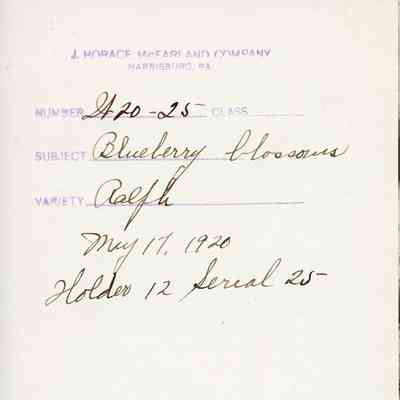 J. HORACE McFARLAND COMPANY
HARRISBURG, PA.
NUMBER 20-25 CLASS
SUBJECT Blueberry blossoms
VARIETY Ralph
May 17, 1920
Holder 12 Serial 25